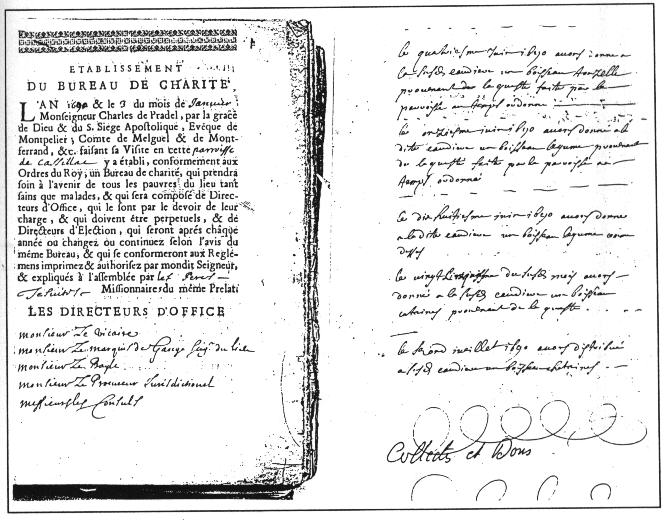 ETABLISSEMENT
DU BUREAU DE CHARITÉ,
L'AN 1690 & le 3 du mois de Janvier
Monseigneur Charles de Pradel, par la grace
de Dieu & du S. Siége Apostolique, Evêque de
Montpelier, Comte de Melgueil & de Mont-
ferrand, &c. faisant sa Visite en cette parroisse
de Cassillac y a établi, conformement aux
Ordres du Roy, un Bureau de charité, qui prendra
soin à l'avenir de tous les pauvres du lieu tant
sains que malades, & qui sera composé de Direc-
teurs d'Office, qui le sont par le devoir de leur
charge, & qui doivent être perpetuels, & de
Directeurs d'Election, qui seront aprés chaque
année ou changez ou continuez selon l'avis du
même Bureau, & qui se conformeront aux Regle-
mens imprimez & authorisez par mondit Seigneur,
& expliqués à l'assemblée par les Peres
Jesuites Missionnaires du même Prelat.
LES DIRECTEURS D'OFFICE
monsieur Le Vicaire
monsieur Le marquis de Gange
monsieur Le Bayle
monsieur Le Procureur Jurisdictionel
messieurs les Consuls
le quatriesme juin 1690 avons donne a
la susd caudieue un boisseau
provenant de la queste faite par la
parroisse
le onziesme juin 1690 avons donné a la
dite caudieue un boisseau legume provenant
de la queste faite par la parroisse
ordonné
le dix huitiesme juin 1690 avons donne
a la dite caudieue un boisseau legume comme
dessus
le vingt du susd mois avons
donné a la susd caudieue un boisseau
provenant de la queste
le segond juillet 1690 avons distribué
a susd caudieue un boisseau
Collects et Dons